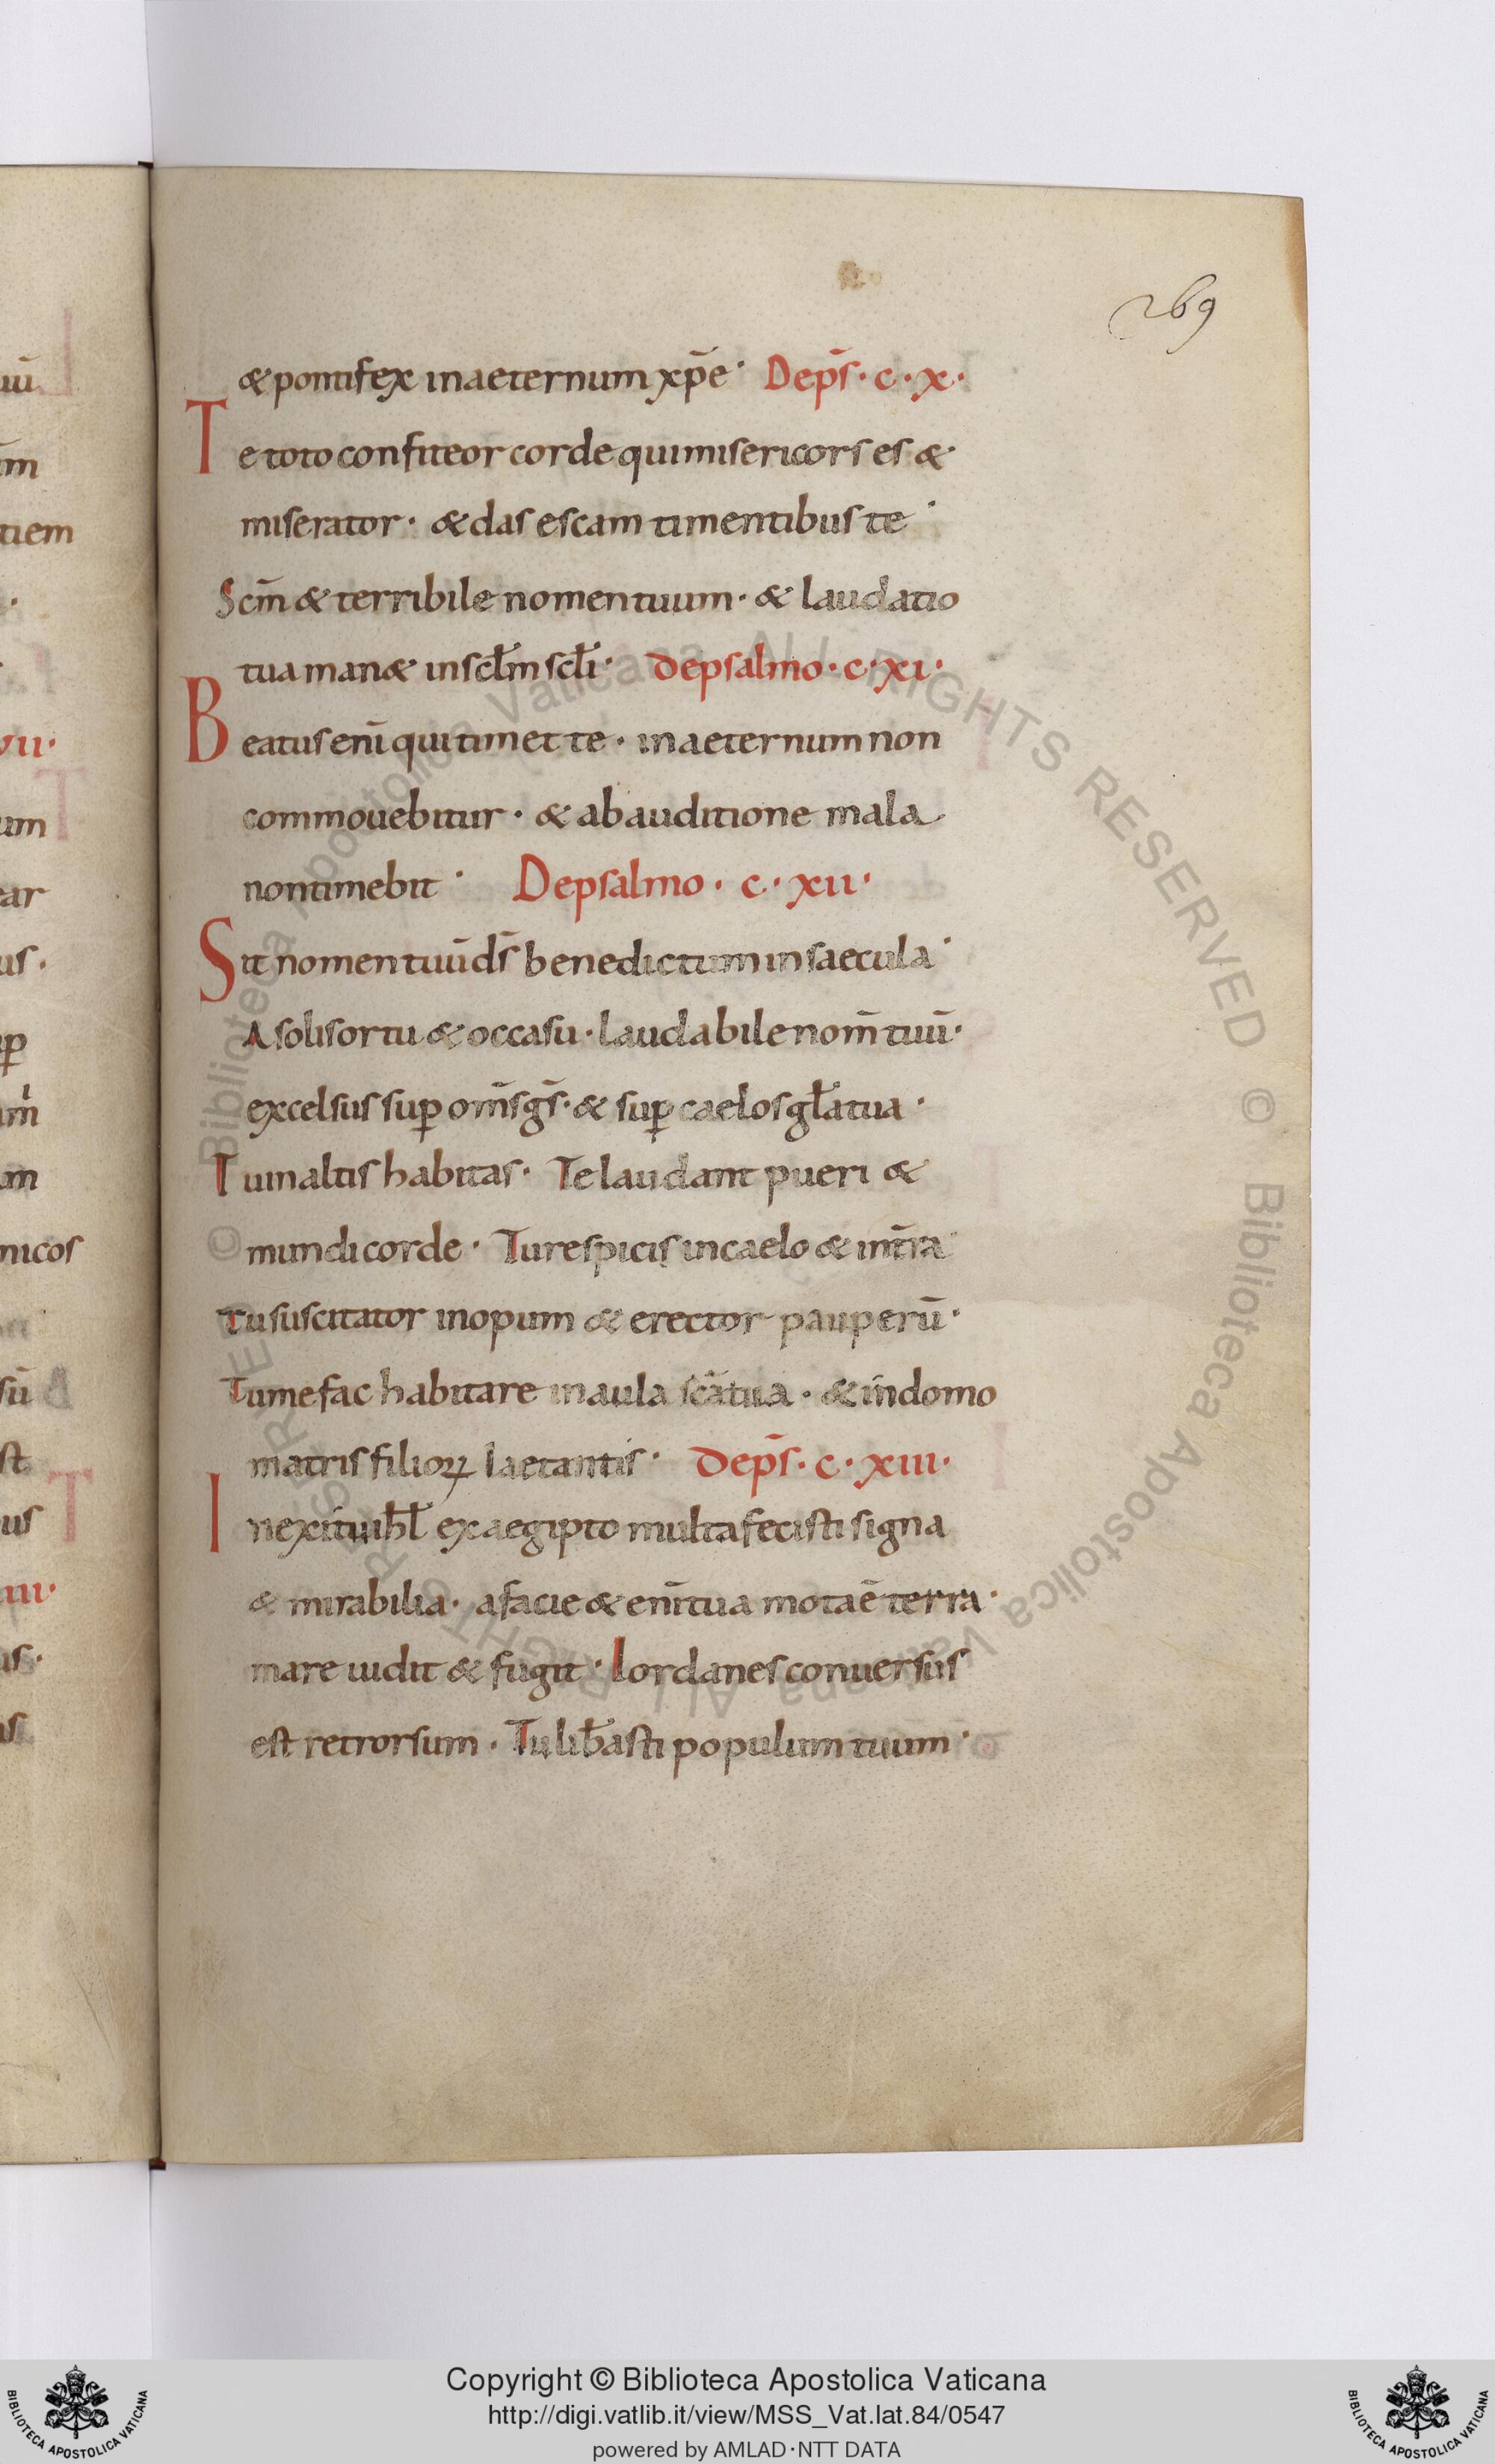 269
& pontifex in aeternum xp̄e · Dep̄s · c · x ·
Te toto confiteor corde qui misericors es &
miserator · & das escam timentibus te ·
Scm̄ & terribile nomen tuum · & laudatio
tua man& in scl̄m scl̄i · De psalmo · c · xi ·
Beatus eni̅ qui timet te · in aeternum non
commouebitur · & ab auditione mala
non timebit · De psalmo · c · xii ·
Sit nomen tuū ds̄ benedictum in saecula ·
A solis ortu & occasu · laudabile nom̄ tuū ·
excelsus sup̱ om̄s gs̄ · & sup̱ caelos gl̄a tua ·
Tu in altis habitas · Te laudant pueri &
mundi corde · Tu respicis in caelo & in t̄ra
Tu suscitator inopum & erector pauperū ·
Tu me fac habitare in aula sc̄a tua · & in domo
matris filioꝝ laetantis · Dep̄s · c · xiii ·
In exitu ihl̄ ex aegipto multa fecisti signa
& mirabilia · a facie & eni̅ tua mota ē terra ·
mare uidit & fugit · Iordanes conuersus
est retrorsum · Tu lib̄asti populum tuum ·
© Biblioteca Apostolica Vaticana ALL RIGHTS RESERVED
© Biblioteca Apostolica Vaticana ALL RIGHTS RESERVED
Copyright © Biblioteca Apostolica Vaticana
http://digi.vatlib.it/view/MSS_Vat.lat.84/0547
powered by AMLAD·NTT DATA
BIBLIOTECA APOSTOLICA VATICANA
BIBLIOTECA APOSTOLICA VATICANA